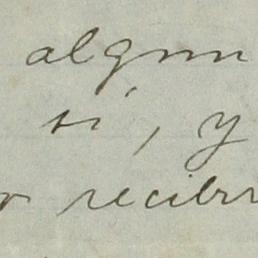 algun
si, y
recibi